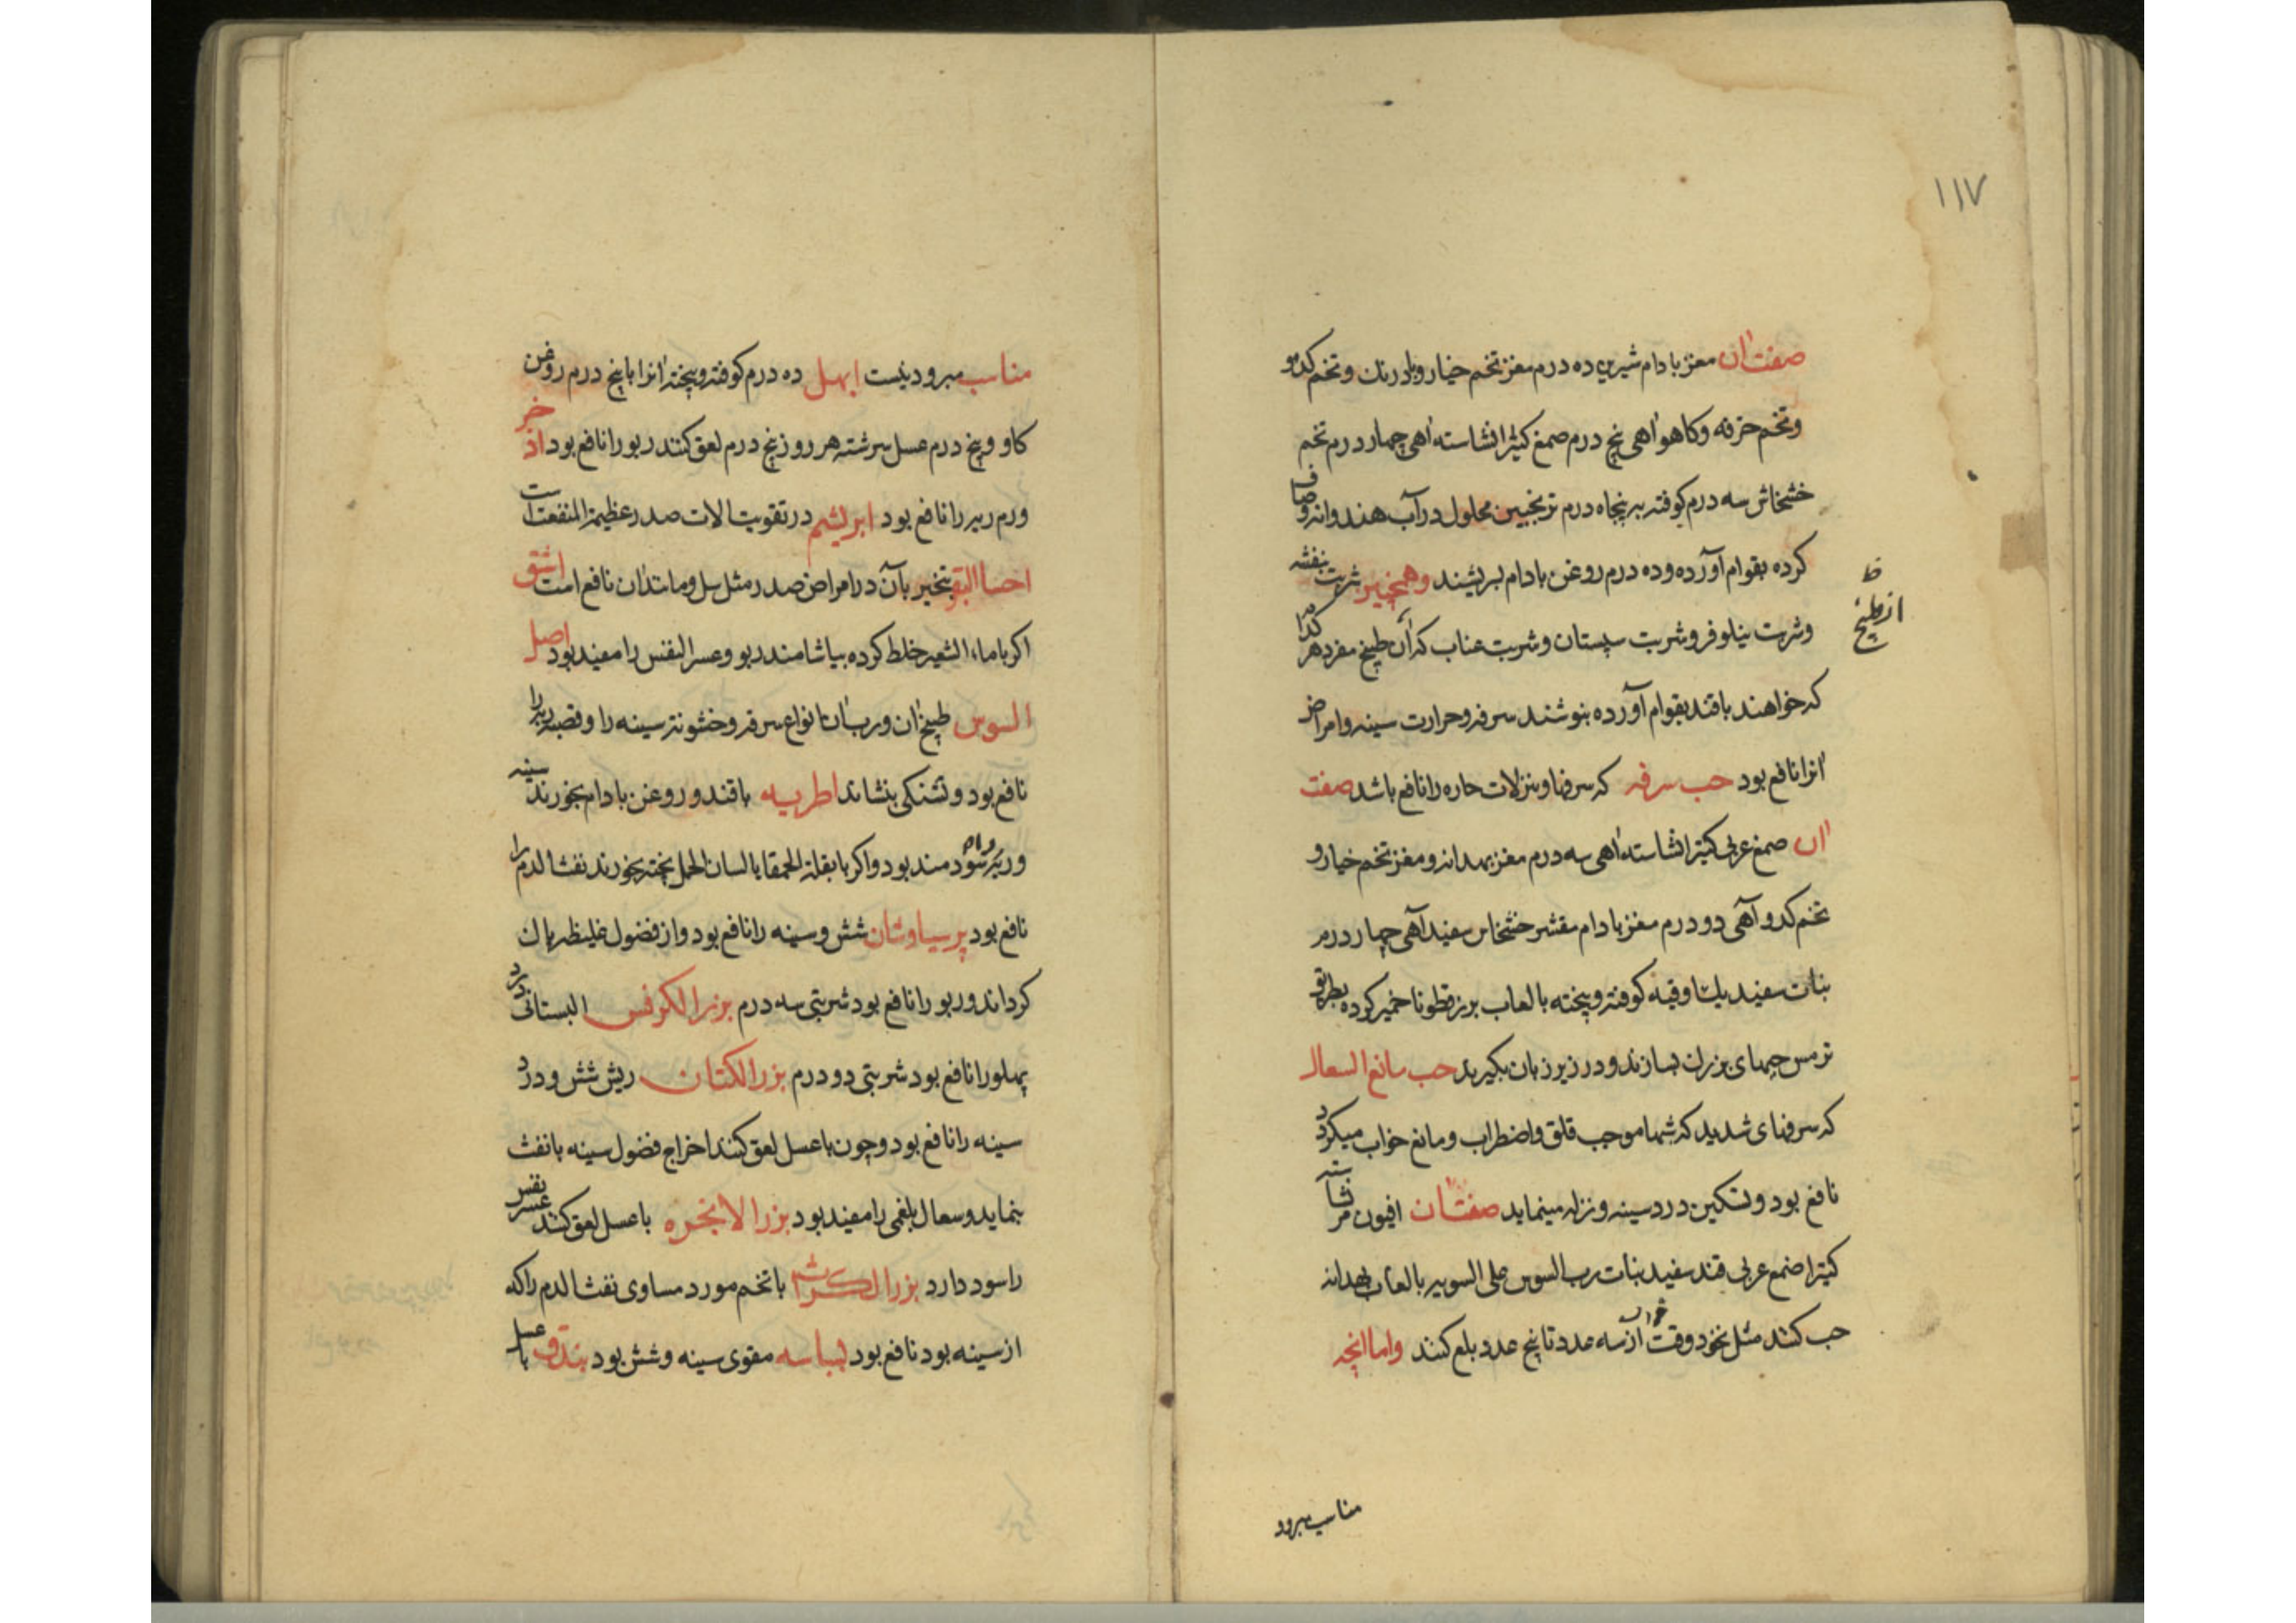 ۱۱۷
صفت آن مغز بادام شیرین ده درم مغز تخم خیار و بادرنک و تخم کدو
و تخم خرفه و کاهو اهی پنج درم صمغ کتیرا نشاسته اهی چهار درم تخم
خشخاش سه درم کوفته بر پنجاه درم ترنجبین محلول در آب هندوانه و صاف
کرده بقوام آورده و ده درم روغن بادام بسریشند و همچنین شربت بنفشه
ظ
از طبیخ
و شربت نیلوفر و شربت سپستان و شربت عناب که آن طبیخ مفرد هر کدام
که خواهند با قند بقوام آورده بنوشند سرفه و حرارت سینه و امراض
انرا نافع بود حب سرفه که سرفها و نزلات حاره را نافع باشد صفت
آن صمغ عربی کتیرا نشاسته اهی سه درم مغز بهدانه و مغز تخم خیار و
تخم کدو آهی دو درم مغز بادام مقشر خشخاش سفید آهی چهار درم
نبات سفید یک اوقیه کوفته و پیخته بالعاب بزرقطونا خمیر کرده بطریق
ترمس حبهای بزرک بسازند و در زیر زبان بکیرید حب مانع السعال
که سرفهای شدید که شبها موجب قلق و اضطراب و مانع خواب میکردد
نافع بود و تسکین درد سینه و نزله مینماید صفت آن افیون مر نشاسته
کتیرا صمغ عربی قند سفید نبات رب السوس علی السویه بالعاب بهدانه
حب کنند مثل نخود وقت خواب از سه عدد تا پنج عدد بلع کنند و اما انچه
مناسب مبرود
مناسب مبرودینست ابهل ده درم کوفته و پیخته انرا با پنج درم روغن
کاو و پنج درم عسل سرشته هر روز پنج درم لعق کنند ربو را نافع بود اذخر
ورم ریه را نافع بود ابریشم در تقویت الات صدر عظیم المنفعت است
اخسا البقر بتخیر بآن در امراض صدر مثل سل و مانند آن نافع است اشق
اکر باماء الشعیر خلط کرده بیاشامند ربو و عسر النفس را مفید بود اصل
السوس طبیخ آن و رب آن تا انواع سرفه و خشونت سینه را و قصبه ریه را
نافع بود و تشنکی بنشاند اطریه با قند و روغن بادام بخورند سینه
و ریه را سودمند بود و اکر با بقلة الحمقا یا لسان الحمل پخته بخورند نفث الدم را
نافع بود پرسیاوشان شش و سینه را نافع بود و از فضول غلیظه پاک
کرداند و ربو را نافع بود شربتی سه درم بزر الکرفس البستانی درد
پهلو را نافع بود شربتی دو درم بزر الکتان ریش شش و درد
سینه را نافع بود و چون با عسل لعق کنند اخراج فضول سینه بانفث
بنماید و سعال بلغمی را مفید بود بزر الانجره با عسل لعق کنند عسر نفس
را سود دارد بزر الکراث با تخم مورد مساوی نفث الدم را که
از سینه بود نافع بود بسباسه مقوی سینه و شش بود بندق با عسل